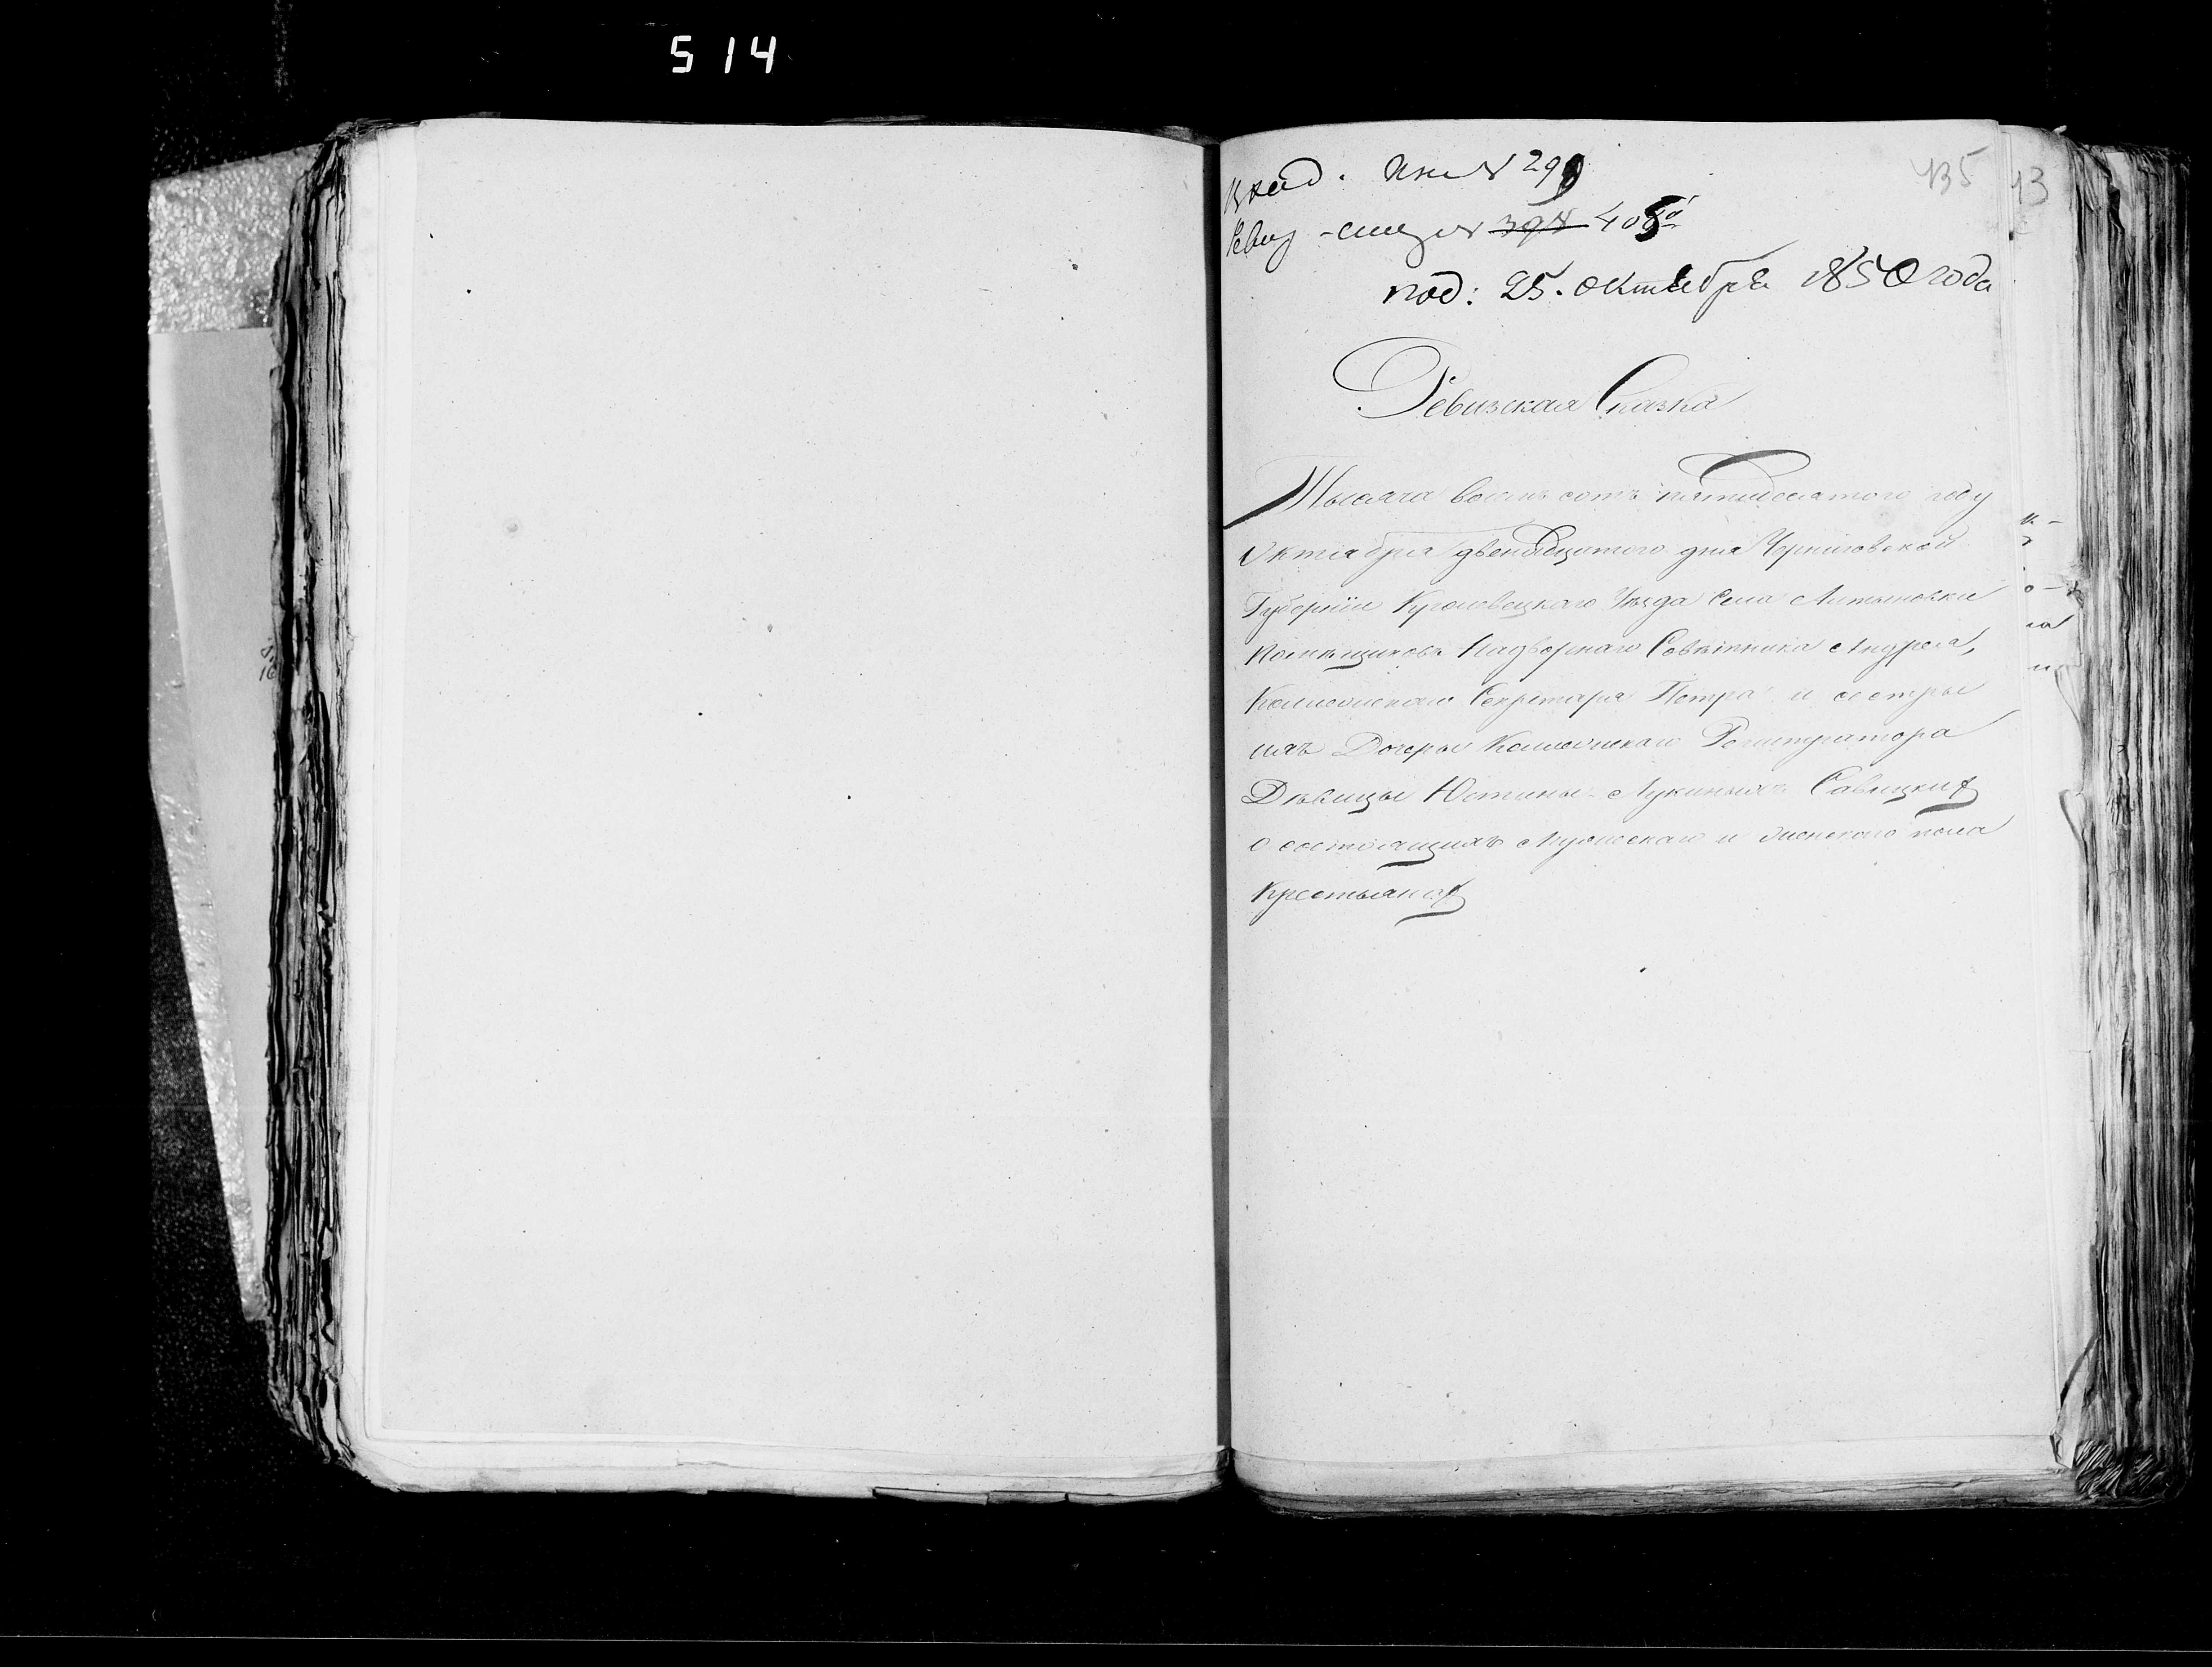 514
435 13
Вход. Кн. № 299
Ревиз - сказ № 398 405
под: 25. Октября 1850 года
Ревизская Сказка
Тысяча восемь сотъ пятидесятого году
Октября двенадцатого дня Черниговской
Губерніи Кролевецкаго Уѣзда Села Алтыновки
Помѣщиковъ Надворнаго Совѣтника Андрея,
Коллежскаго Секретаря Петра и сестры
ихъ Дочеры Коллежскаго Регистратора
Дѣвицы Юстины Лукиныхъ Савицкихъ
о состоящихъ Мужескаго и женскаго пола
Крестьянахъ